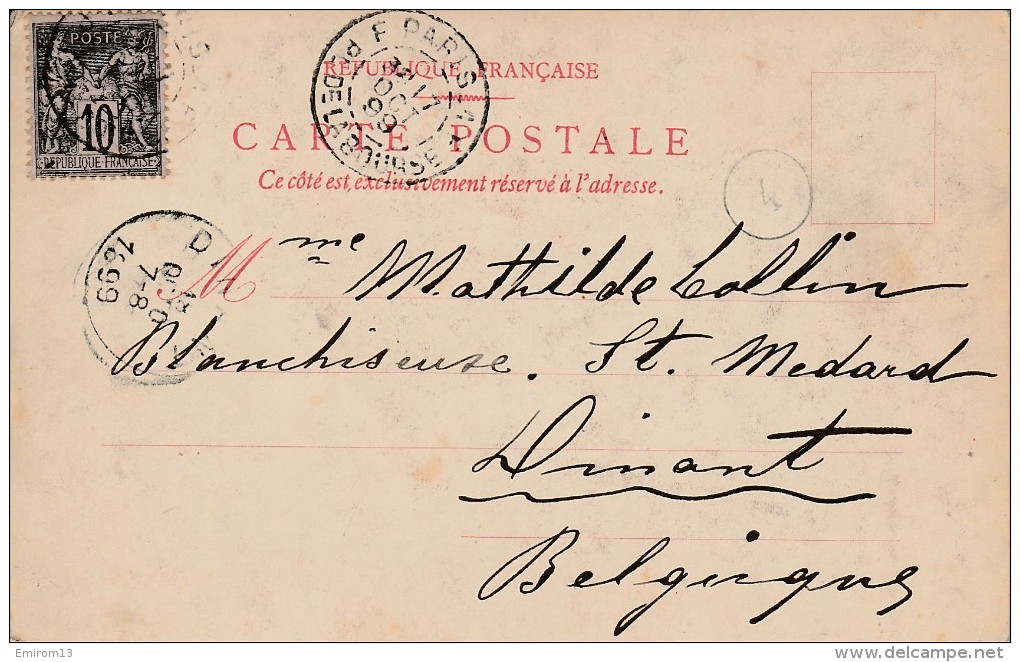 POSTE
10
REPUBLIQUE FRANÇAISE
PARIS
R. DE LA BOURSE
OCT
99
RÉPUBLIQUE FRANÇAISE
CARTE POSTALE
Ce côté est exclusivement réservé à l'adresse.
4
1899
7-8
Mme Mathilde Collin
Blanchiseuse. St. Medard
Dinant
Belgique
Emirom13
delcampe.net